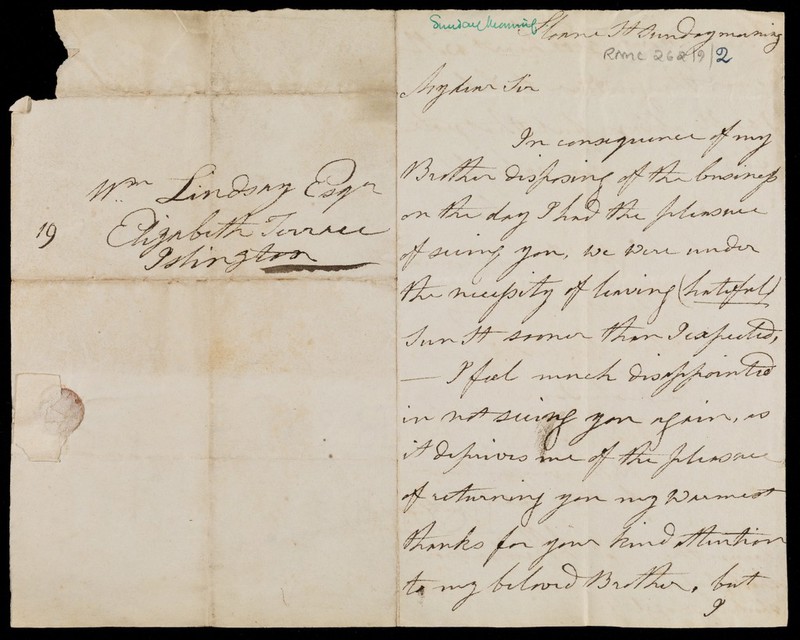 Wm Lindsay Esqr
19 Elizabeth Terrace
Islington
Sunday Morning
Sloane St Sunday morning
RAMC 262/9/2
My dear Sir
In consequence of my
Brother disposing of the business
on the day I had the pleasure
of seeing you, we were under
the necessity of leaving (hateful)
Sun St sooner than I expected,
— I feel much disappointed
in not seeing you again, as
it deprives me of the pleasure
of returning you my warmest
thanks for your kind attention
to my beloved Brother, but
I